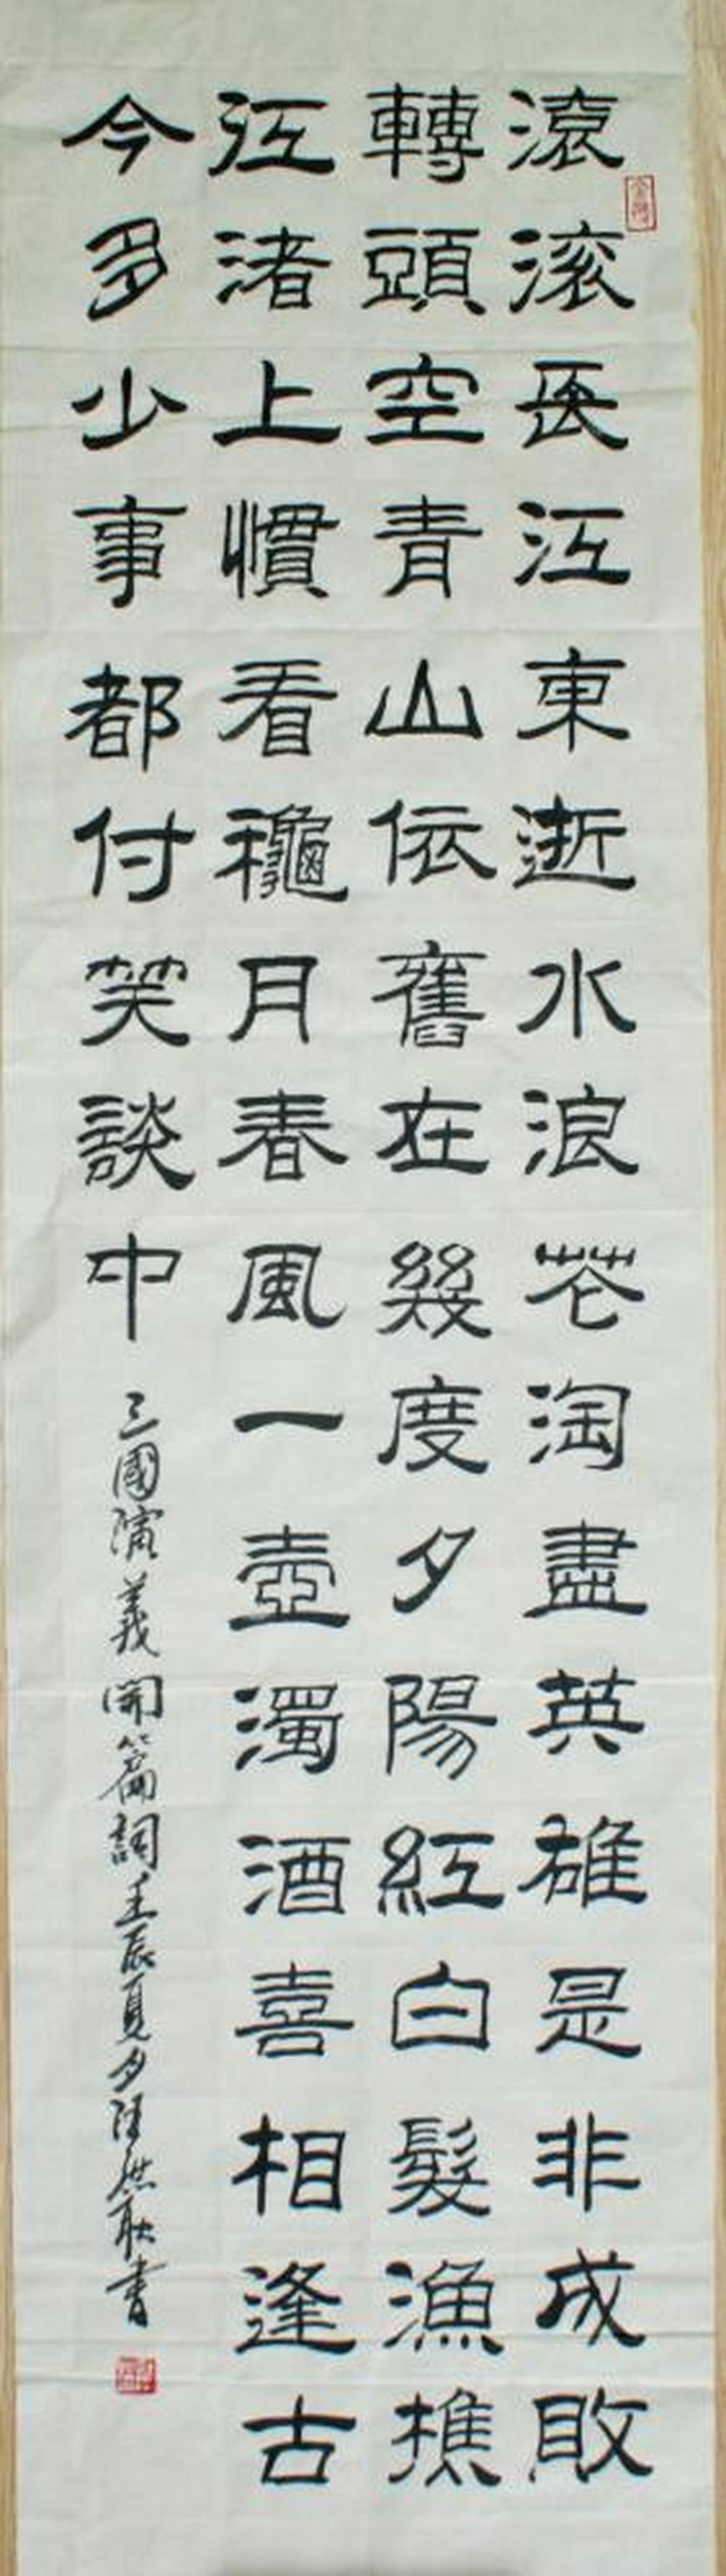 滾滚長江東逝水浪花淘盡英雄是非成敗
轉頭空青山依舊在幾度夕陽紅白髮漁樵
江渚上慣看龝月春風一壺濁酒喜相逢古
今多少事都付笑談中
三國演義開篇詞壬辰夏夕汪洪耿書